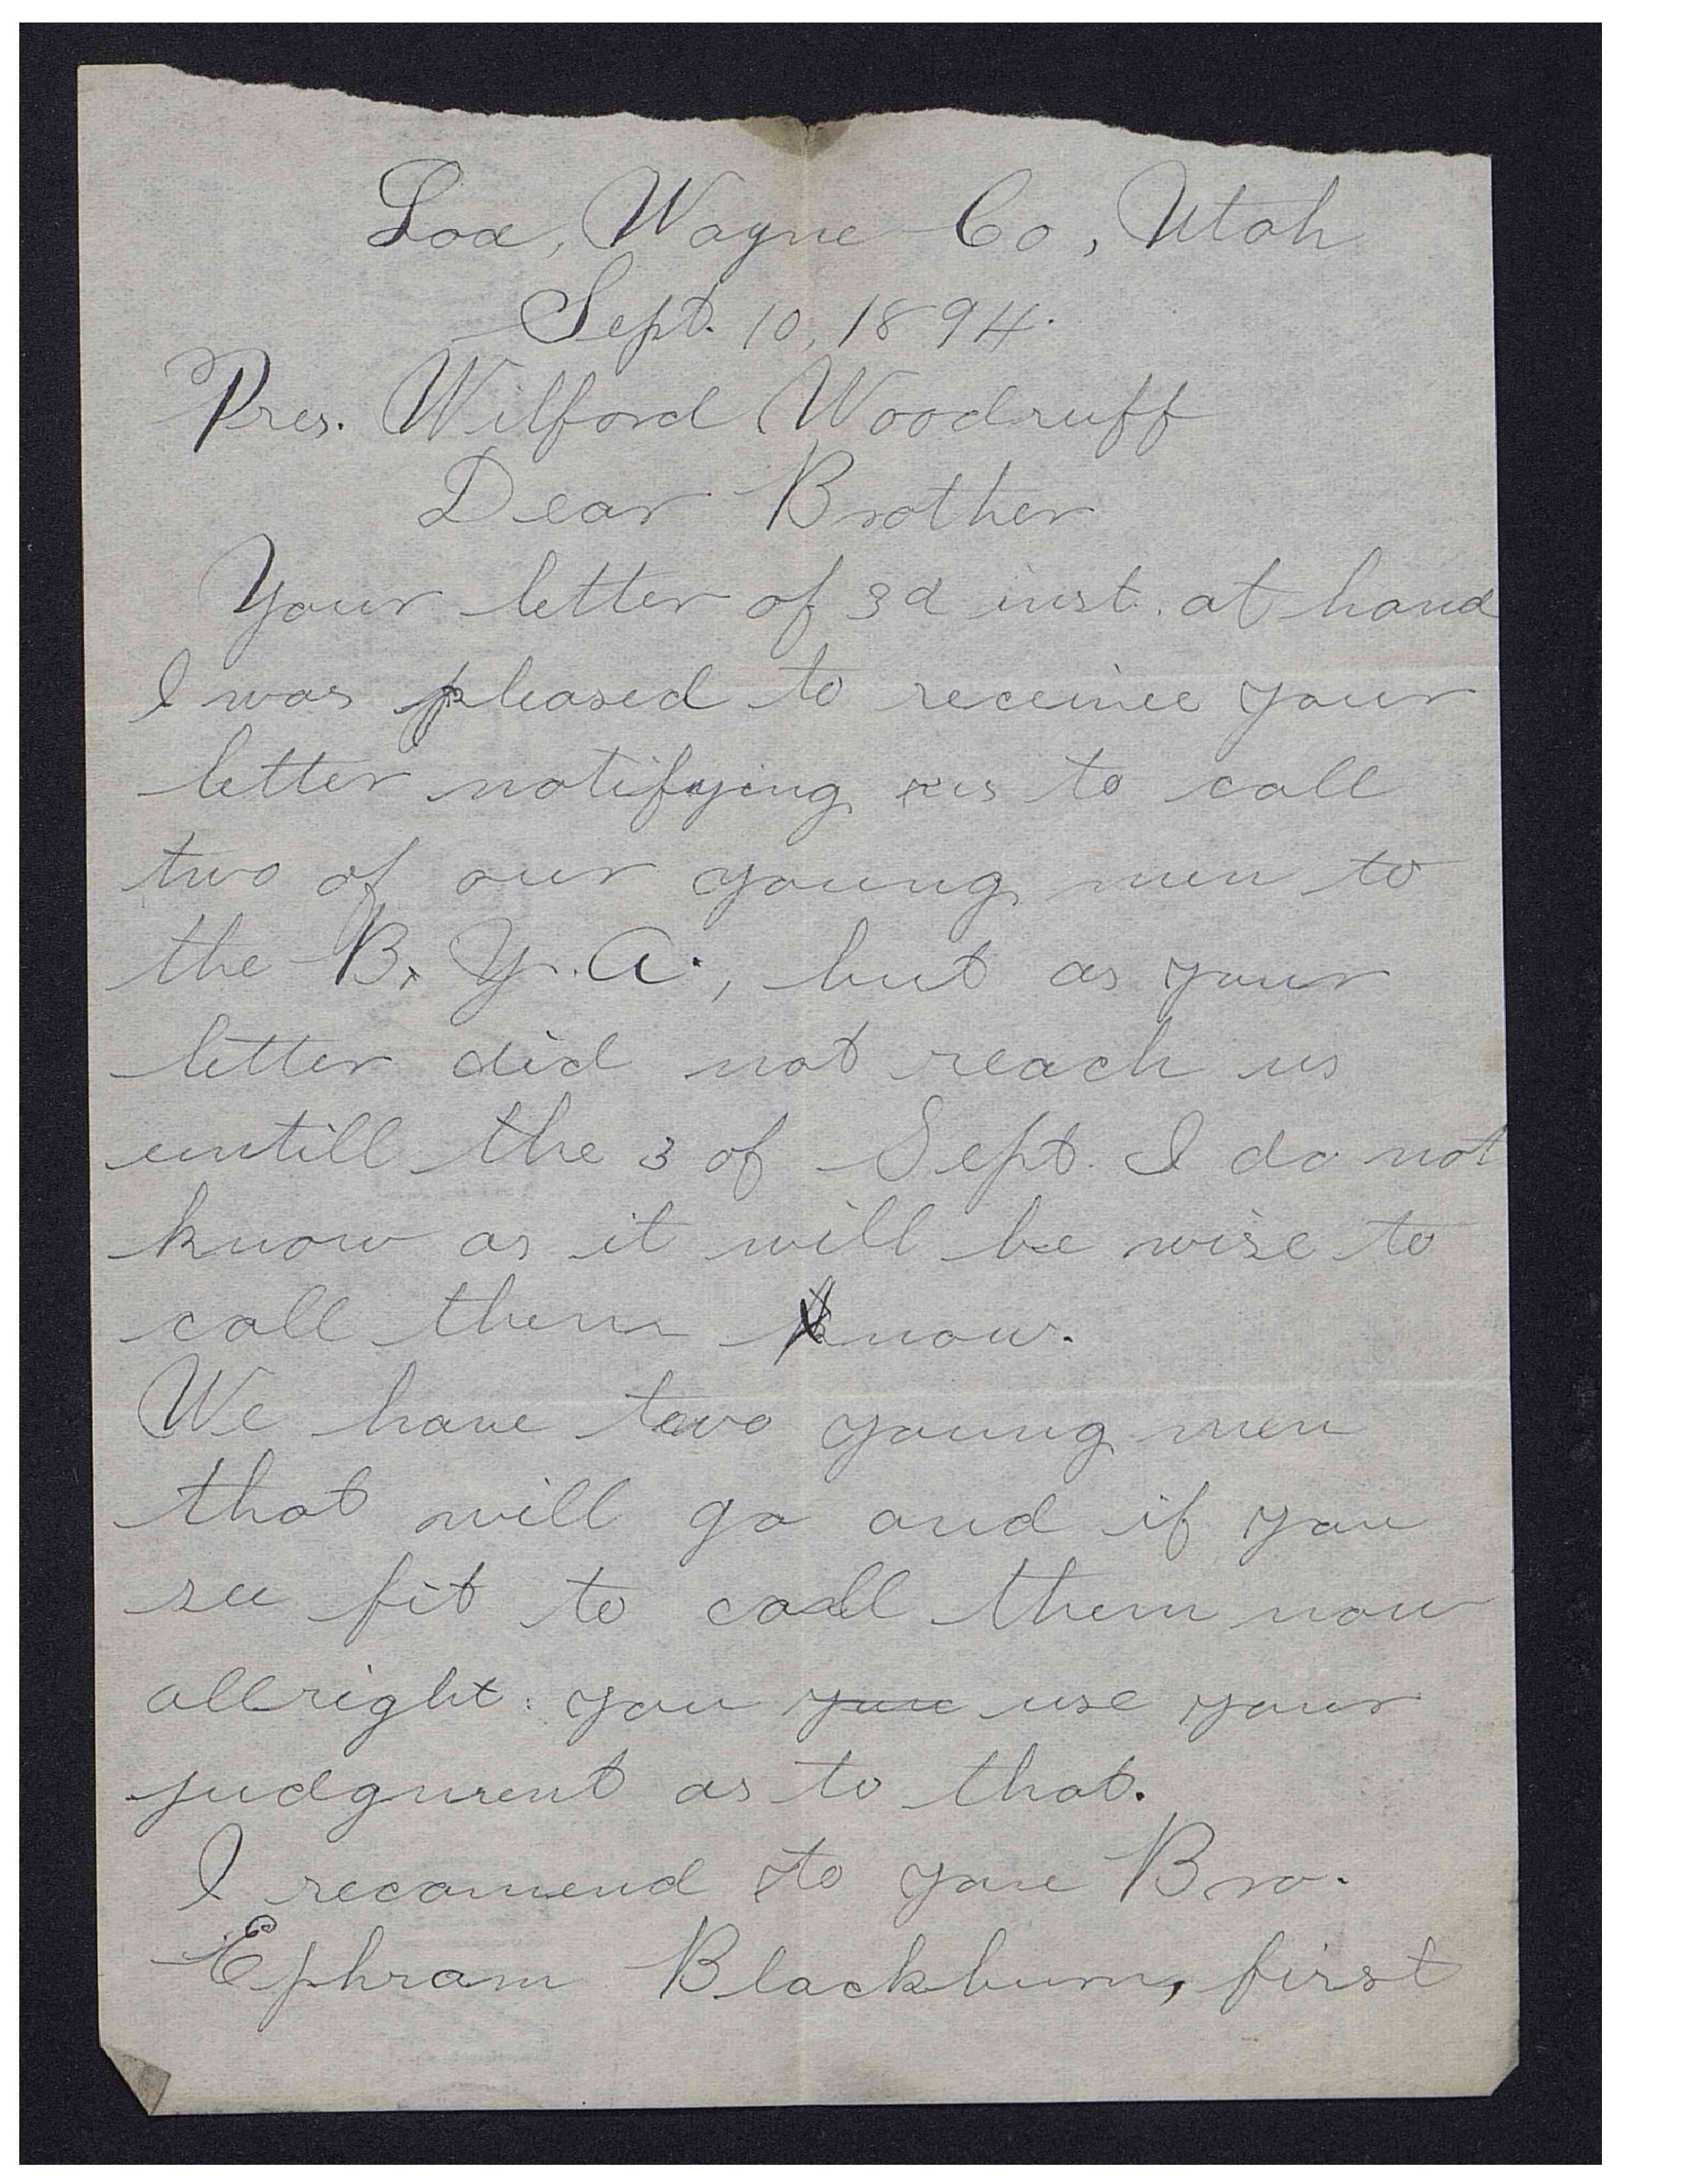 Loa, Wayne Co, Utah
Sept. 10, 1894.
Pres. Wilford Woodruff
Dear Brother
Your letter of 3d inst. at hand
I was pleased to receive your
letter notifying us to call
two of our young men to
the B. Y. A., but as your
letter did not reach us
untill the 3 of Sept. I do not
know as it will be wise to
call them know.
We have two young men
that will go and if you
see fit to call them now
allright: you your use your
judgment as to that.
I recomend to you Bro.
Ephram Blackburn, first